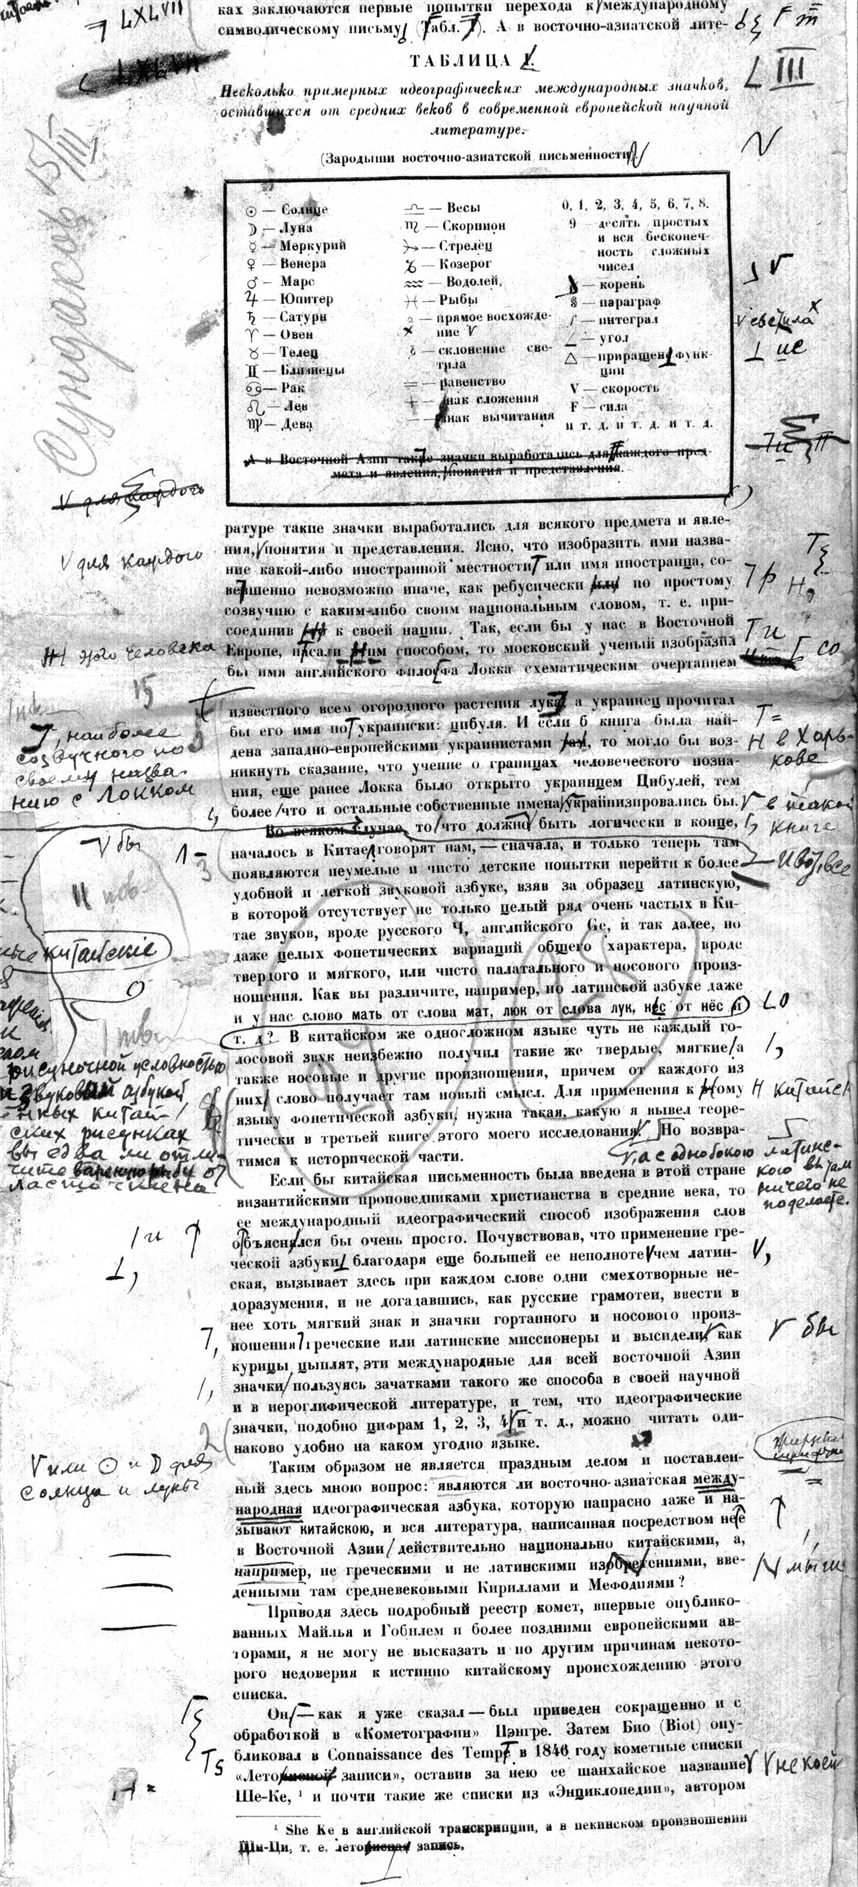 ках заключаются первые попытки перехода к международному
символическому письму (Табл. ). А в восточно-азиатской лите-
LXLVII
ТАБЛИЦА
LIII
Несколько примерных идеографических международных значков,
оставшихся от средних веков в современной европейской научной
литературе.
(Зародыши восточно-азиатской письменности)
Сундаков 15/III
☉ — Солнце
☽ — Луна
☿ — Меркурий
♀ — Венера
♂ — Марс
♃ — Юпитер
♄ — Сатурн
♈ — Овен
♉ — Телец
♊ — Близнецы
♋ — Рак
♌ — Лев
♍ — Дева
♎ — Весы
♏ — Скорпион
♐ — Стрелец
♑ — Козерог
♒ — Водолей,
♓ — Рыбы
— прямое восхожде-
ние
— склонение све-
тила
= — равенство
+ — знак сложения
— — знак вычитания
0, 1, 2, 3, 4, 5, 6, 7, 8,
9 — десять простых
и вся бесконеч-
ность сложных
чисел
— корень
§ — параграф
∫ — интеграл
∠ — угол
△ — приращение функ-
ции
V — скорость
F — сила
и т. д. и т. д. и т. д.
светила
А в Восточной Азии такие значки выработались для каждого пред-
мета и явления, понятия и представления.
для каждого
ратуре такие значки выработались для всякого предмета и явле-
ния, понятия и представления. Ясно, что изобразить ими назва-
для каждого
ние какой-либо иностранной местности или имя иностранца, со-
вершенно невозможно иначе, как ребусически или по простому
созвучию с каким-либо своим национальным словом, т. е. при-
соединив к своей нации. Так, если бы у нас в Восточной
этого человека
Европе, писали способом, то московский ученый изобразил
бы имя английского философа Локка схематическим очертанием
15
известного всем огородного растения лука, а украинец прочитал
бы его имя по украински: цибуля. И если б книга была най-
наиболее
созвучного по
своему назва-
нию с Локком
дена западно-европейскими украинистами , то могло бы воз-
в Харь-
кове
никнуть сказание, что учение о границах человеческого позна-
ния, еще ранее Локка было открыто украинцем Цибулей, тем
более что и остальные собственные имена украинизировались бы.
книге
Во всяком случае, то что должно быть логически в конце,
бы
началось в Китае говорят нам, — сначала, и только теперь там
появляются неумелые и чисто детские попытки перейти к более
удобной и легкой звуковой азбуке, взяв за образец латинскую,
в которой отсутствует не только целый ряд очень частых в Ки-
тае звуков, вроде русского Ч, английского Ge, и так далее, но
китайские
даже целых фонетических вариаций общего характера, вроде
твердого и мягкого, или чисто палатального и носового произ-
ношения. Как вы различите, например, по латинской азбуке даже
и у нас слово мать от слова мат, люк от слова лук, нес от нёс и
т. д.? В китайском же односложном языке чуть не каждый го-
лосовой звук неизбежно получил такие же твердые, мягкие а
также носовые и другие произношения, причем от каждого из
них слово получает там новый смысл. Для применения к этому
языку фонетической азбуки, нужна такая, какую я вывел теоре-
тически в третьей книге этого моего исследования. Но возвра-
тимся к исторической части.
рисуночной условностью
и звуковой азбукой
китай-
ских рисунках
вы едва ли отли-
чите
а с однобокою латинс-
кого вы там
ничего не
поделаете.
Если бы китайская письменность была введена в этой стране
византийскими проповедниками христианства в средние века, то
ее международный идеографический способ изображения слов
объяснялся бы очень просто. Почувствовав, что применение гре-
ческой азбуки благодаря еще большей ее неполноте чем латин-
ская, вызывает здесь при каждом слове одни смехотворные не-
доразумения, и не догадавшись, как русские грамотеи, ввести в
нее хоть мягкий знак и значки гортанного и носового произ-
ношения, греческие или латинские миссионеры и высидели как
бы
курицы цыплят, эти международные для всей восточной Азии
значки пользуясь зачатками такого же способа в своей научной
и в иероглифической литературе, и тем, что идеографические
значки, подобно цифрам 1, 2, 3, 4 и т. д., можно читать оди-
наково удобно на каком угодно языке.
или ☉ и ☽ для
солнца и луны
Таким образом не является праздным делом и поставлен-
ный здесь мною вопрос: являются ли восточно-азиатская между-
народная идеографическая азбука, которую напрасно даже и на-
зывают китайскою, и вся литература, написанная посредством нее
в Восточной Азии действительно национально китайскими, а,
например, не греческими и не латинскими изобретениями, вве-
денными там средневековыми Кириллами и Мефодиями?
Приводя здесь подробный реестр комет, впервые опублико-
ванных Майлья и Гобилем и более поздними европейскими ав-
торами, я не могу не высказать и по другим причинам некото-
рого недоверия к истинно китайскому происхождению этого
списка.
Он — как я уже сказал — был приведен сокращенно и с
обработкой в «Кометографии» Пэнгре. Затем Био (Biot) опу-
бликовал в Connaissance des Temps в 1846 году кометные списки
«Лето записи», оставив за нею ее шанхайское название
Ше-Ке, ¹ и почти такие же списки из «Энциклопедии», автором
¹ She Ke в английской транскрипции, а в пекинском произношении
Ши-Ци, т. е. летописная запись.